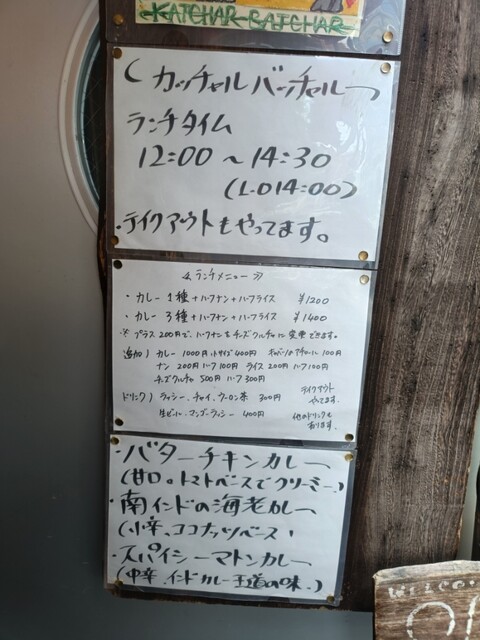 KATCHAR BATCHAR
カッチャル バッチャル
ランチタイム
12:00 ~ 14:30
(L.O 14:00)
・テイクアウトもやってます。
≪ランチメニュー≫
・カレー 1種 + ハーフナン + ハーフライス ¥1200
・カレー 3種 + ハーフナン + ハーフライス ¥1400
※プラス200円で、ハーフナンをチーズクルチャに変更できます。
追加) カレー 1000円 小サイズ400円 キャベツのアチャール 100円
ナン 200円 ハーフ100円 ライス 200円 ハーフ100円
チーズクルチャ 500円 ハーフ300円
ドリンク) ラッシー、チャイ、ウーロン茶 300円
生ビール、マンゴーラッシー 400円
テイクアウト
やってます。
他のドリンクも
あります。
・バターチキンカレー
(甘口。トマトベースでクリーミー。)
・南インドの海老カレー
(小辛、ココナッツベース)
・スパイシーマトンカレー
(中辛、インドカレー王道の味。)
WELCO